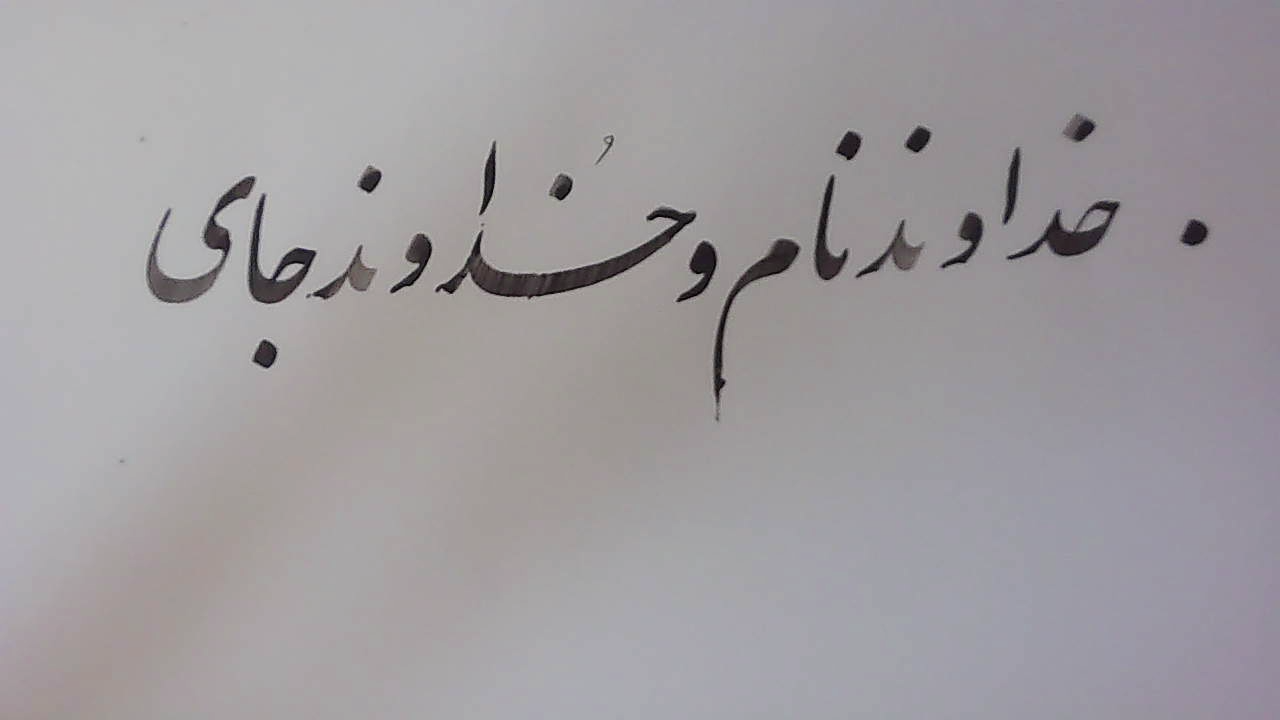 خداوند نام و خُداوند جای